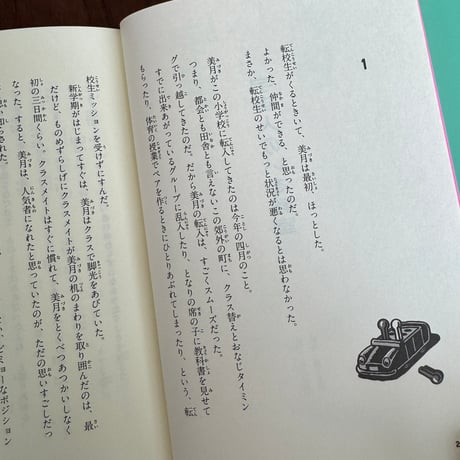 1
転校生がくるときいて、美月は最初、ほっとした。
よかった。仲間ができる、と思ったのだ。
まさか、転校生のせいでもっと状況が悪くなるとは思わなかった。
美月がこの小学校に転入してきたのは今年の四月のこと。
つまり、都会とも田舎とも言えないこの郊外の町に、クラス替えとおなじタイミン
グで引っ越してきたのだ。だから美月の転入は、すごくスムーズだった。
すでに出来あがっているグループに乱入したり、となりの席の子に教科書を見せて
もらったり、体育の授業でペアを作るときにひとりあぶれてしまったり、という、転
校生ミッションを受けずにすんだ。
新学期がはじまってすぐは、美月はクラスで脚光をあびていた。
だけど、ものめずらしげにクラスメイトが美月の机のまわりを取り囲んだのは、最
初の三日間くらい。クラスメイトはすぐに慣れて、美月をとくべつあつかいしなく
なった。すると、美月は、人気者になれたと思っていたのが、ただの思いすごしだっ
知らされた。
ビミョーなポジション
2